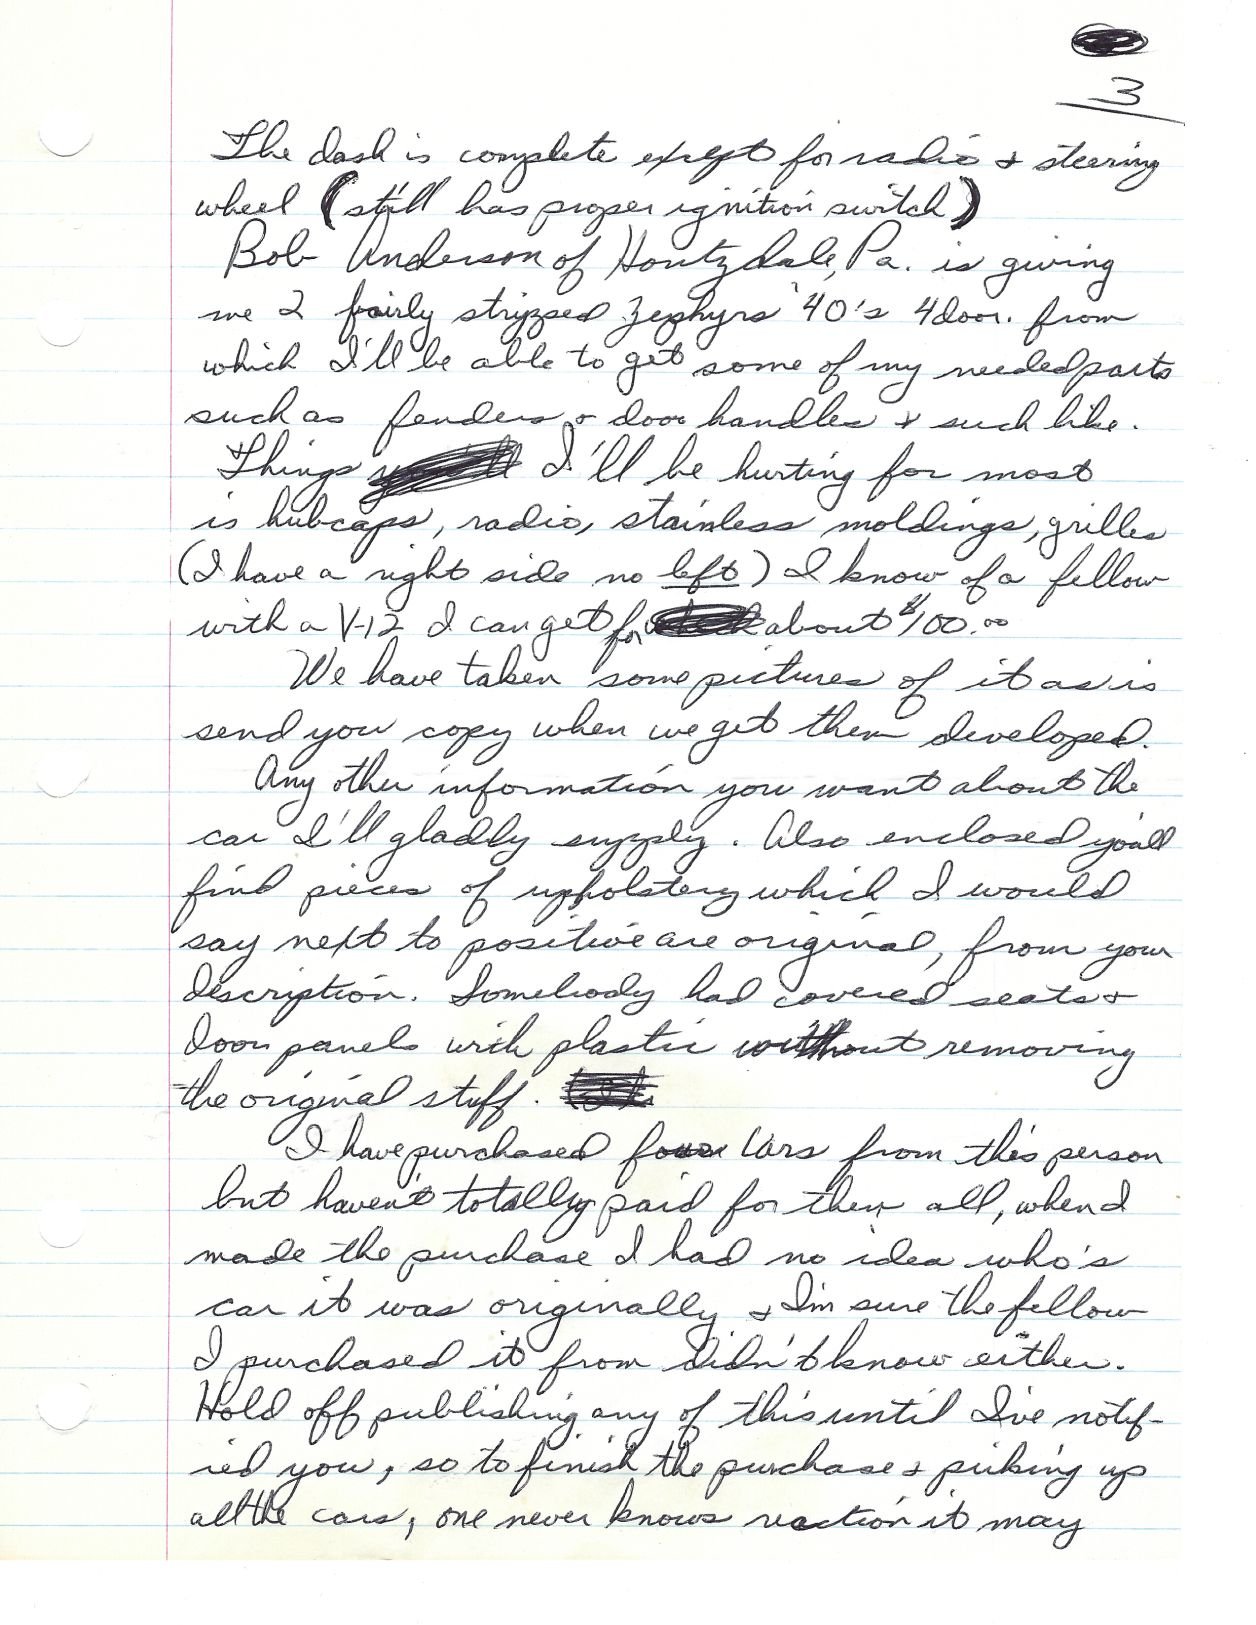 3
The dash is complete exept for radio & steering
wheel (still has proper ignition switch)
Bob Anderson of Houtzdale, Pa. is giving
me 2 fairly stripped Zephyrs '40's 4door. from
which I'll be able to get some of my needed parts
such as fenders & door handles & such like.
Things I'll be hurting for most
is hubcaps, radio, stainless moldings, grilles
(I have a right side no left) I know of a fellow
with a V-12 I can get for about $100.00
We have taken some pictures of it as is
send you copy when we get them developed.
Any other information you want about the
car I'll gladly supply. Also enclosed you'll
find pieces of upholstery which I would
say next to positive are original, from your
description. Somebody had covered seats &
door panels with plastic without removing
the original stuff.
I have purchased four cars from this person
but haven't totally paid for them all, when I
made the purchase I had no idea who's
car it was originally & I'm sure the fellow
I purchased it from didn't know either.
Hold off publishing any of this until I've notif-
ied you, so to finish the purchase & picking up
all the cars, one never knows reaction it may